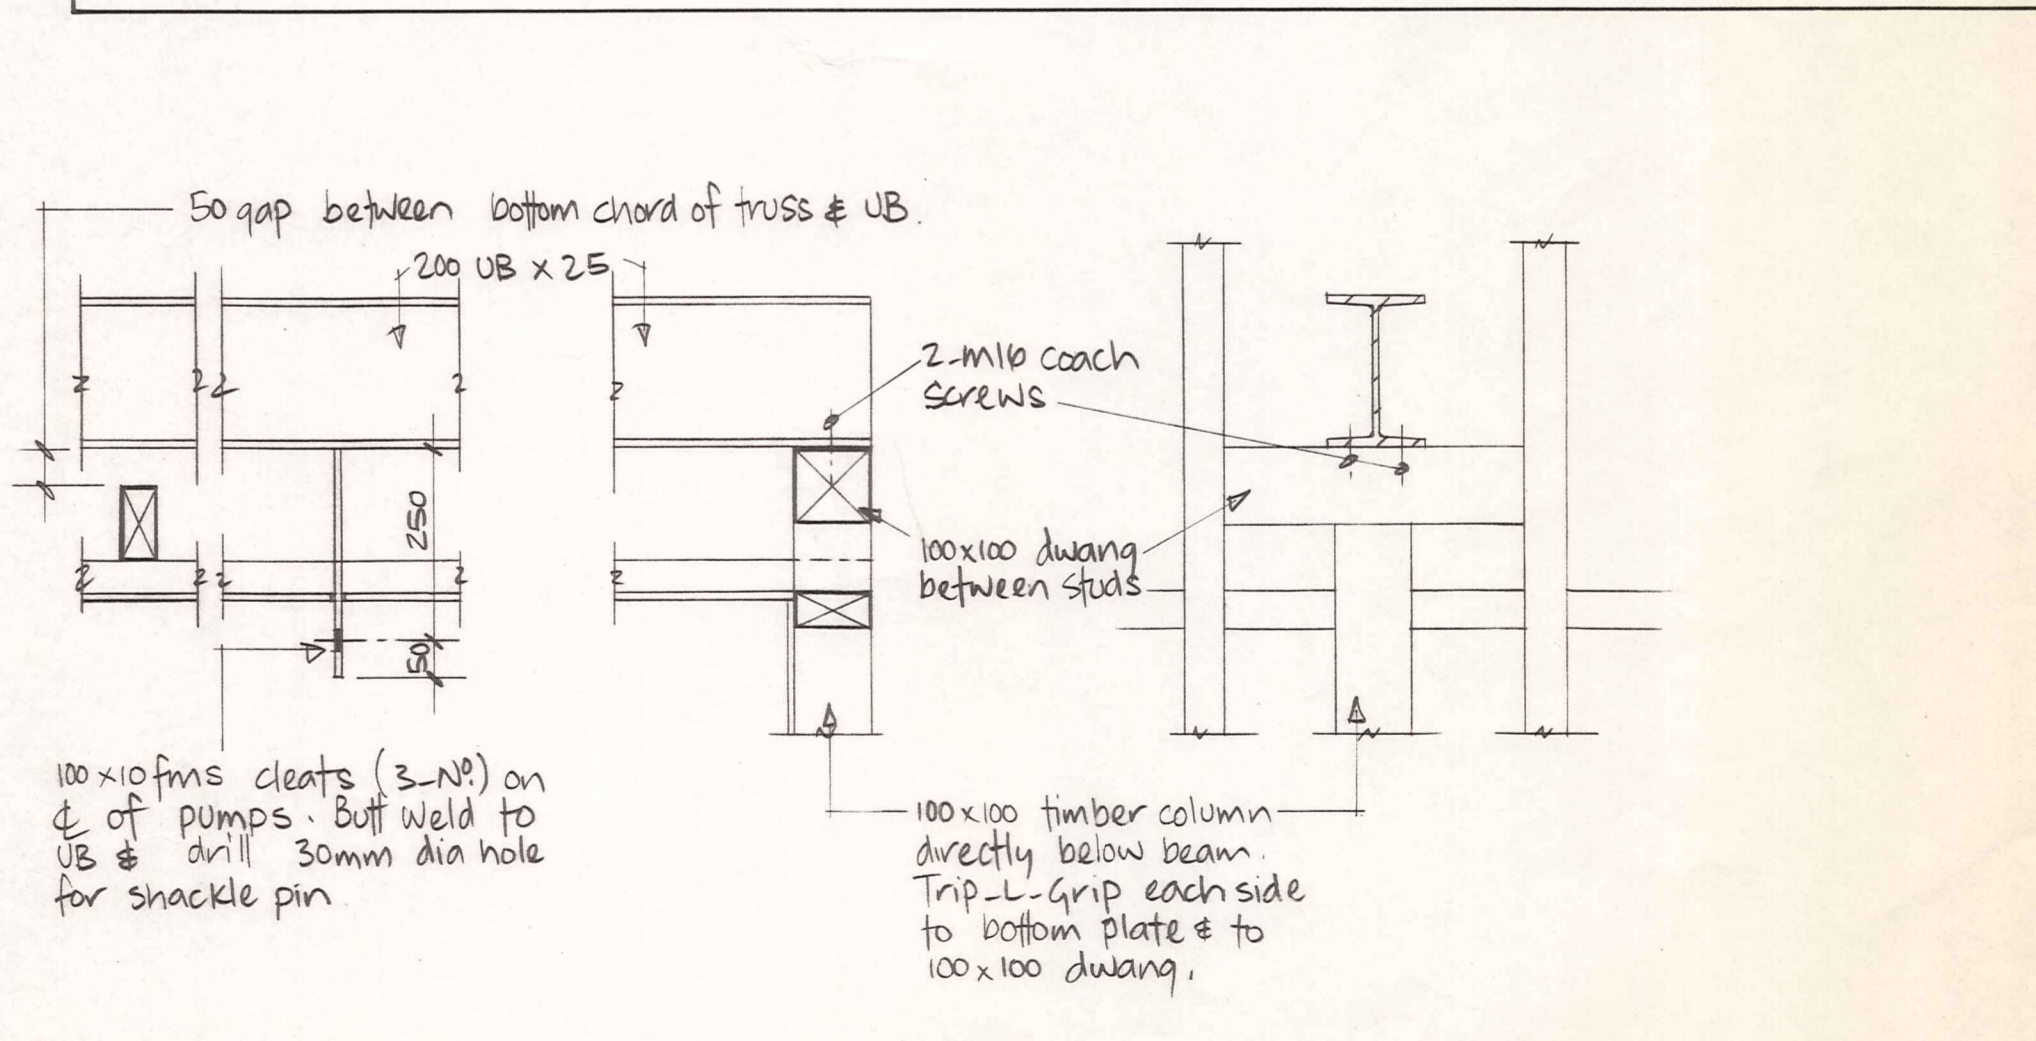 50 gap between bottom chord of truss & UB.
200 UB x 25
2-M16 coach
screws
250
50
100x100 dwang
between studs
100x10 fms cleats (3-Nº.) on
℄ of pumps. Butt weld to
UB & drill 30mm dia hole
for shackle pin
100x100 timber column
directly below beam.
Trip-L-Grip each side
to bottom plate & to
100x100 dwang.